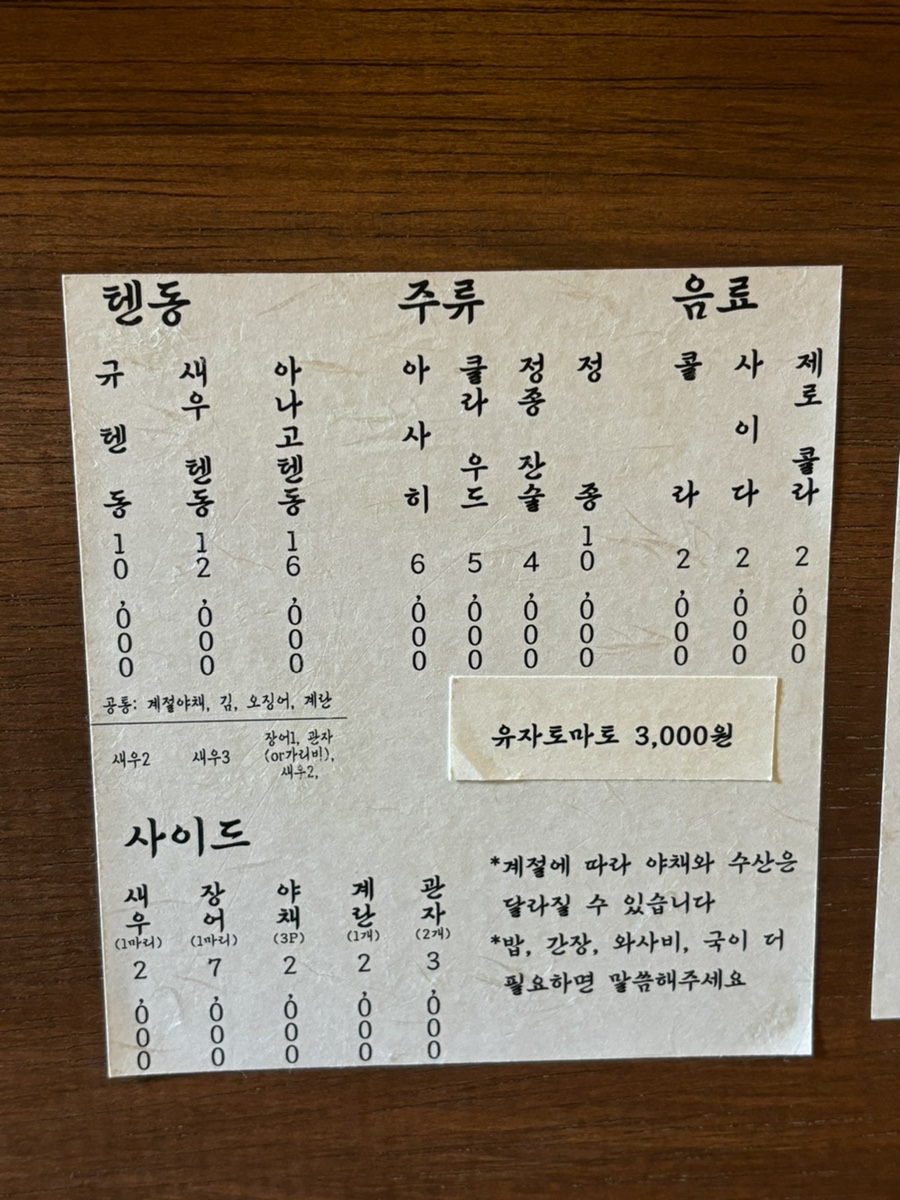 텐동
규 텐 동 10,000
새우 텐동 12,000
아나고텐동 16,000
공통: 계절야채, 김, 오징어, 계란
새우2
새우3
장어1, 관자
(or가리비),
새우2,
주류
아 사 히 6,000
클라우드 5,000
정종 잔술 4,000
정 종 10,000
음료
콜 라 2,000
사 이 다 2,000
제로 콜라 2,000
유자토마토 3,000원
사이드
새우 (1마리) 2,000
장어 (1마리) 7,000
야채 (3P) 2,000
계란 (1개) 2,000
관자 (2개) 3,000
*계절에 따라 야채와 수산은
달라질 수 있습니다
*밥, 간장, 와사비, 국이 더
필요하면 말씀해주세요